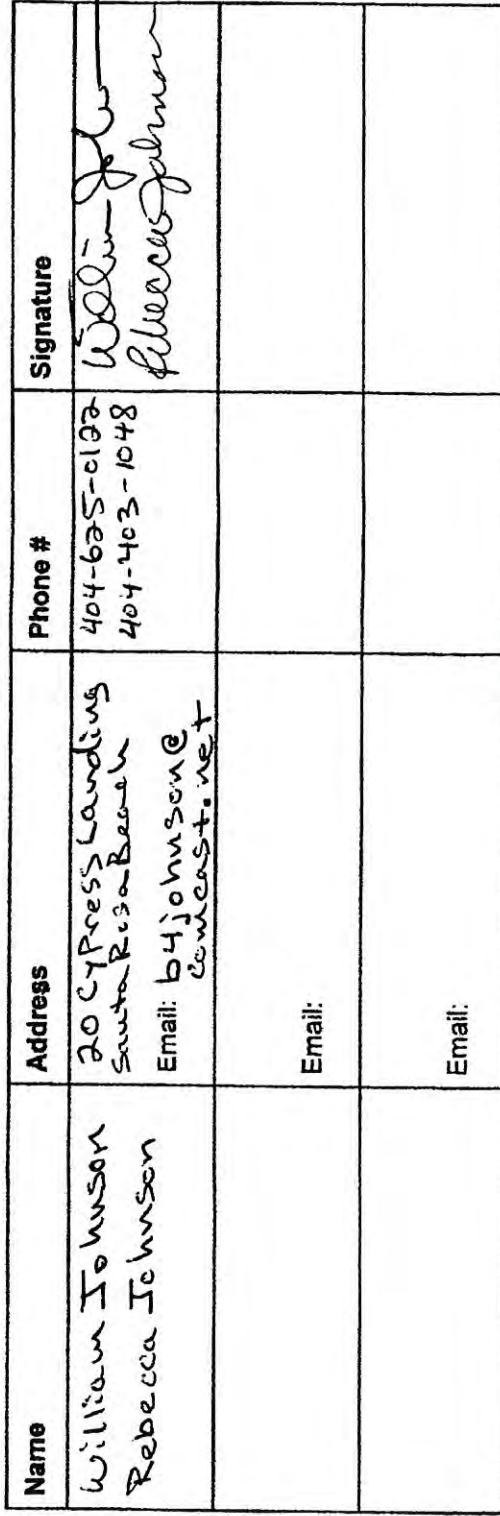 Name Address Phone # Signature
William Johnson
Rebecca Johnson
20 Cypress Landing
Santa Rosa Beach
Email: b4johnson@
comcast.net
404-625-0122
404-403-1048
William
Rebecca Johnson
Email:
Email: